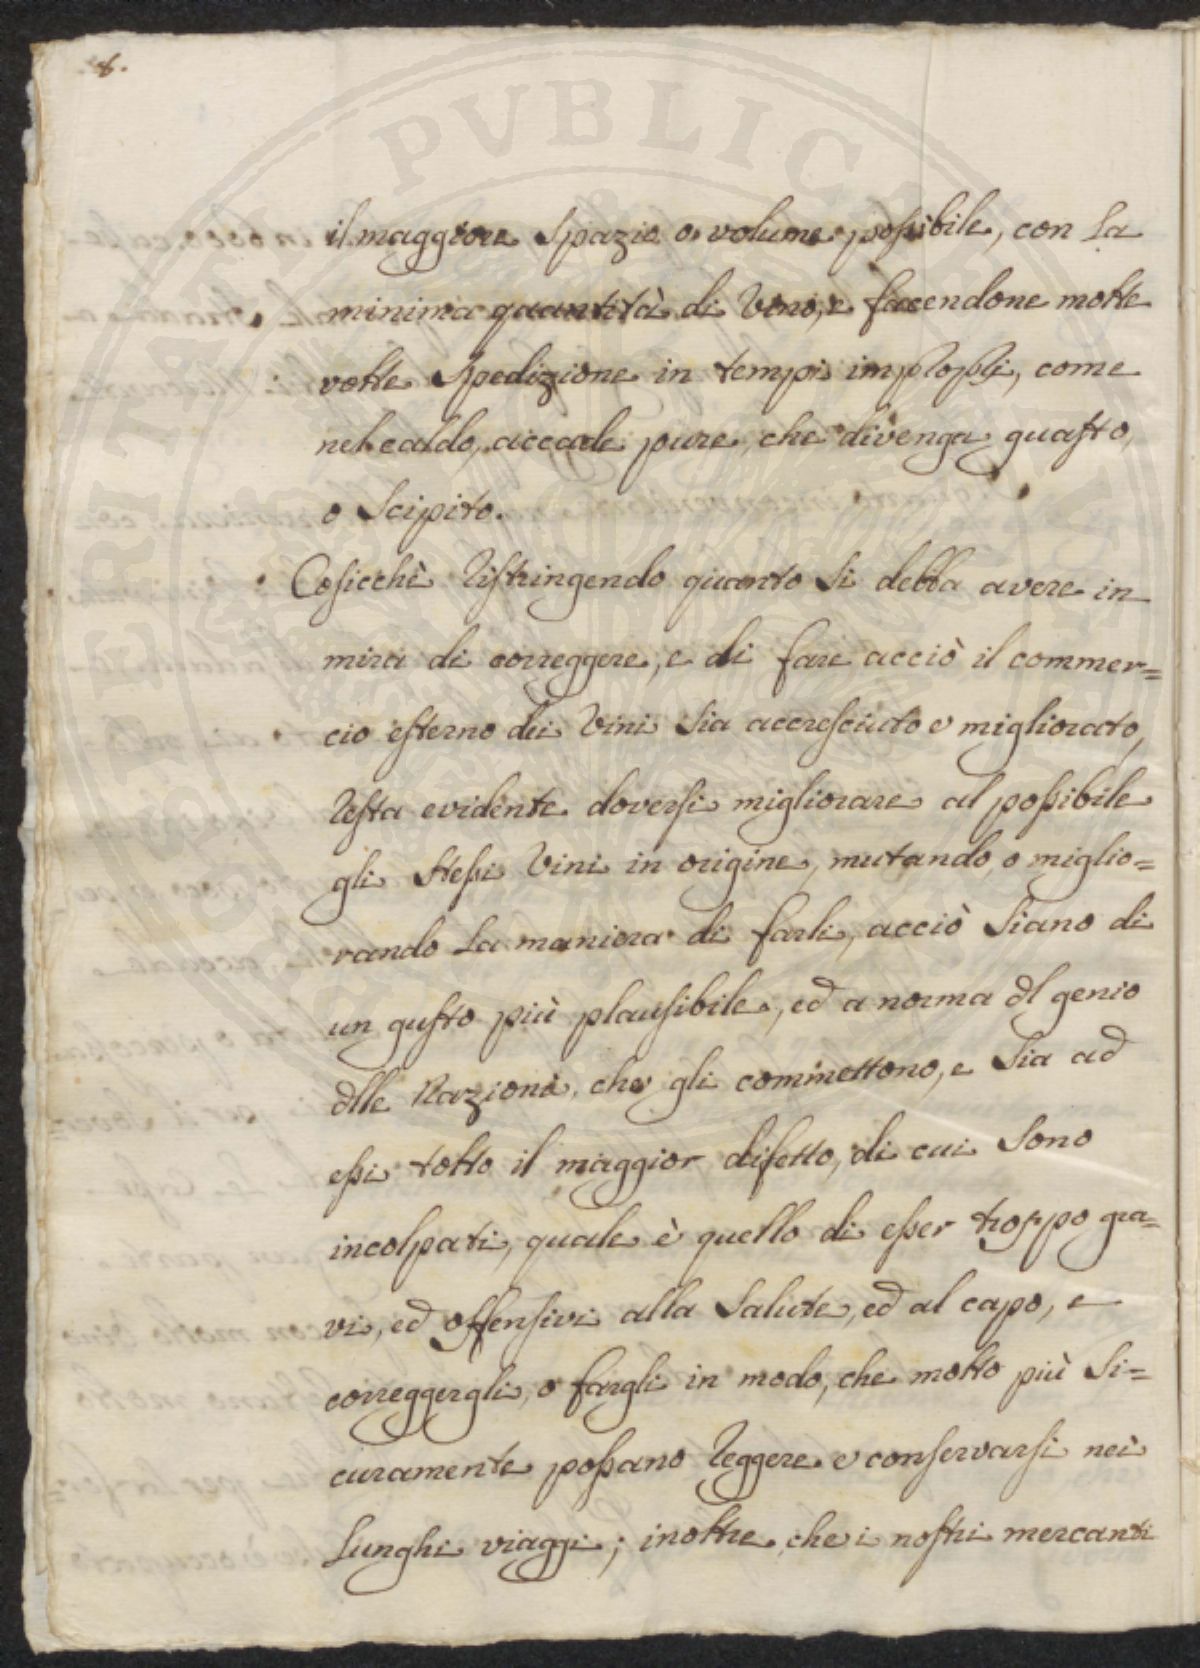 8.
PROSPERITATI PVBLICAE
il maggiore Spazio o volume possibile, con La
minima quantità di Vino, e facendone molte
volte Spedizione in tempi improprj, come
nel caldo, accade pure, che divenga guasto,
o Scipito.
Cosicchè Ristringendo quanto Si debba avere in
mira di correggere, e di fare acciò il commer=
cio esterno dei Vini Sia accresciuto e migliorato,
Resta evidente doversi migliorare al possibile
gli Stessi Vini in origine, mutando, o miglio=
rando La maniera di farli, acciò Siano di
un gusto più plausibile, ed a norma dl genio
dlle Nazioni, che gli commettono, e Sia ad
essi tolto il maggior difetto, di cui Sono
incolpati, quale è quello di esser troppo gra=
vi, ed offensivi alla Salute, ed al capo, e
correggergli, o fargli in modo, che molto più Si=
curamente possano Reggere e conservarsi nei
Lunghi viaggi; inoltre, che i nostri mercanti